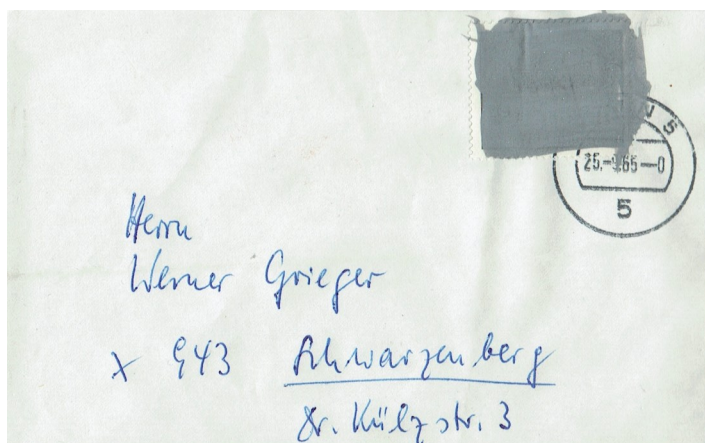 N 5
25.-9.65--0
5
Herrn
Werner Grieger
x 943 Schwarzenberg
Dr. Külzstr. 3